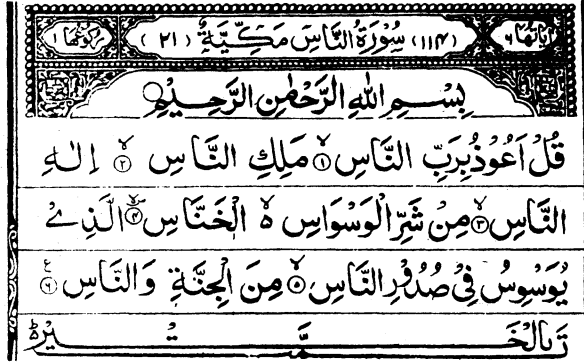 اٰیاتھا ٦ (١١٤) سُوْرَةُ النَّاسِ مَكِّيَّةٌ (٢١) رکوعھا ١
بِسْمِ اللّٰهِ الرَّحْمٰنِ الرَّحِيْمِ
قُلْ اَعُوْذُ بِرَبِّ النَّاسِ ۙ﴿١﴾ مَلِكِ النَّاسِ ۙ﴿٢﴾ اِلٰهِ
النَّاسِ ۙ﴿٣﴾ مِنْ شَرِّ الْوَسْوَاسِ ۵ الْخَنَّاسِ ۪ۙ﴿٤﴾ الَّذِيْ
يُوَسْوِسُ فِيْ صُدُوْرِ النَّاسِ ۙ﴿٥﴾ مِنَ الْجِنَّةِ وَالنَّاسِ ﴿٦﴾ ع
تَمَّتْ بِالْخَيْرِ